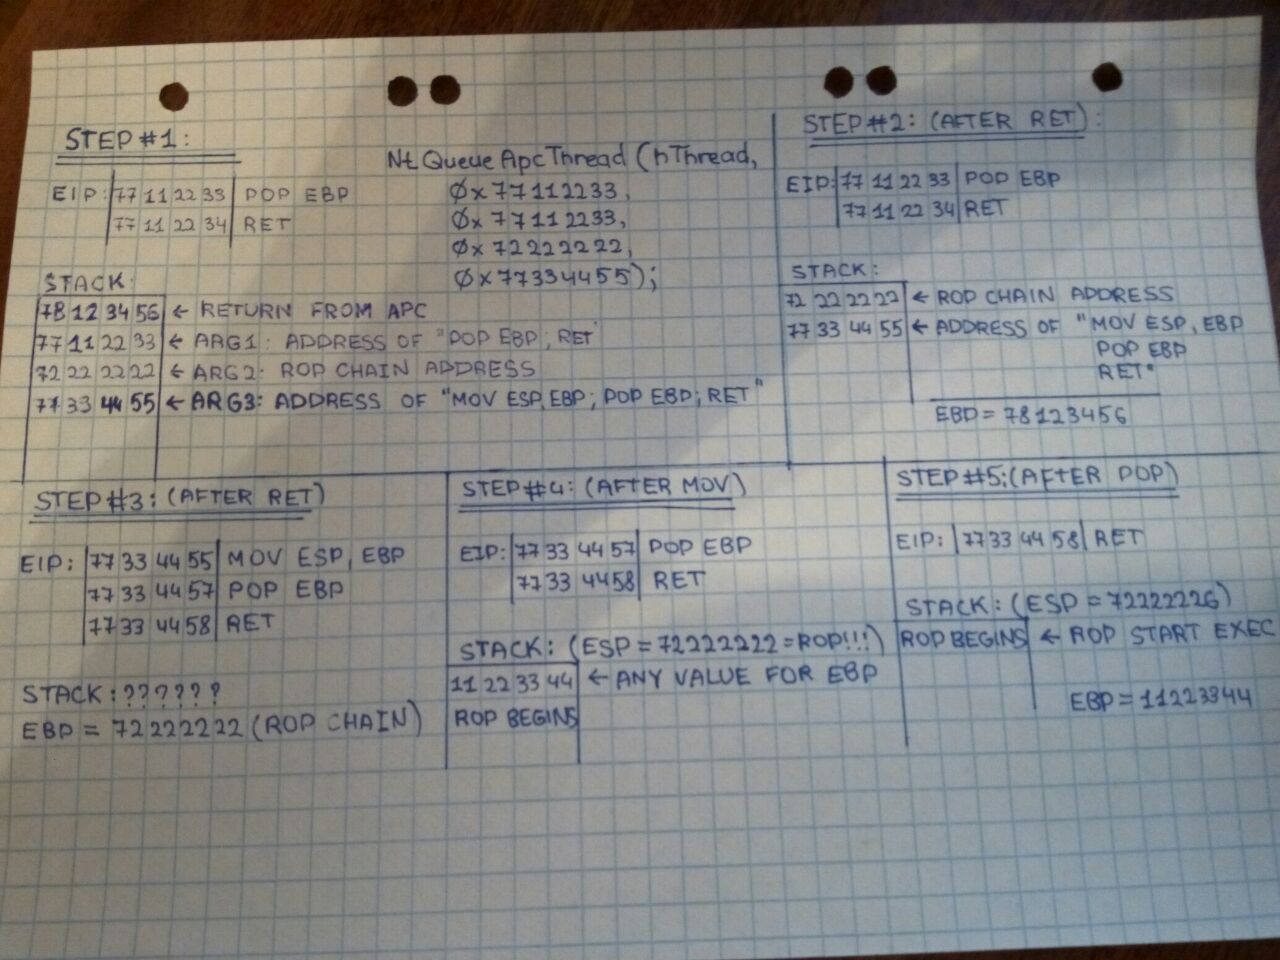 STEP #1:
NtQueueApcThread (hThread,
0x77112233,
0x77112233,
0x72222222,
0x77334455);
EIP: 77 11 22 33 POP EBP
77 11 22 34 RET
STACK:
78 12 34 56 ← RETURN FROM APC
77 11 22 33 ← ARG1: ADDRESS OF "POP EBP; RET"
72 22 22 22 ← ARG2: ROP CHAIN ADDRESS
77 33 44 55 ← ARG3: ADDRESS OF "MOV ESP,EBP; POP EBP; RET"
STEP #2: (AFTER RET):
EIP: 77 11 22 33 POP EBP
77 11 22 34 RET
STACK:
72 22 22 22 ← ROP CHAIN ADDRESS
77 33 44 55 ← ADDRESS OF "MOV ESP, EBP
POP EBP
RET"
EBP = 78123456
STEP #3: (AFTER RET)
EIP: 77 33 44 55 MOV ESP, EBP
77 33 44 57 POP EBP
77 33 44 58 RET
STACK: ??????
EBP = 72222222 (ROP CHAIN)
STEP #4: (AFTER MOV)
EIP: 77 33 44 57 POP EBP
77 33 44 58 RET
STACK: (ESP = 72222222 = ROP!!!)
11 22 33 44 ← ANY VALUE FOR EBP
ROP BEGINS
STEP #5: (AFTER POP)
EIP: 77 33 44 58 RET
STACK: (ESP = 72222226)
ROP BEGINS ← ROP START EXEC
EBP = 11223344